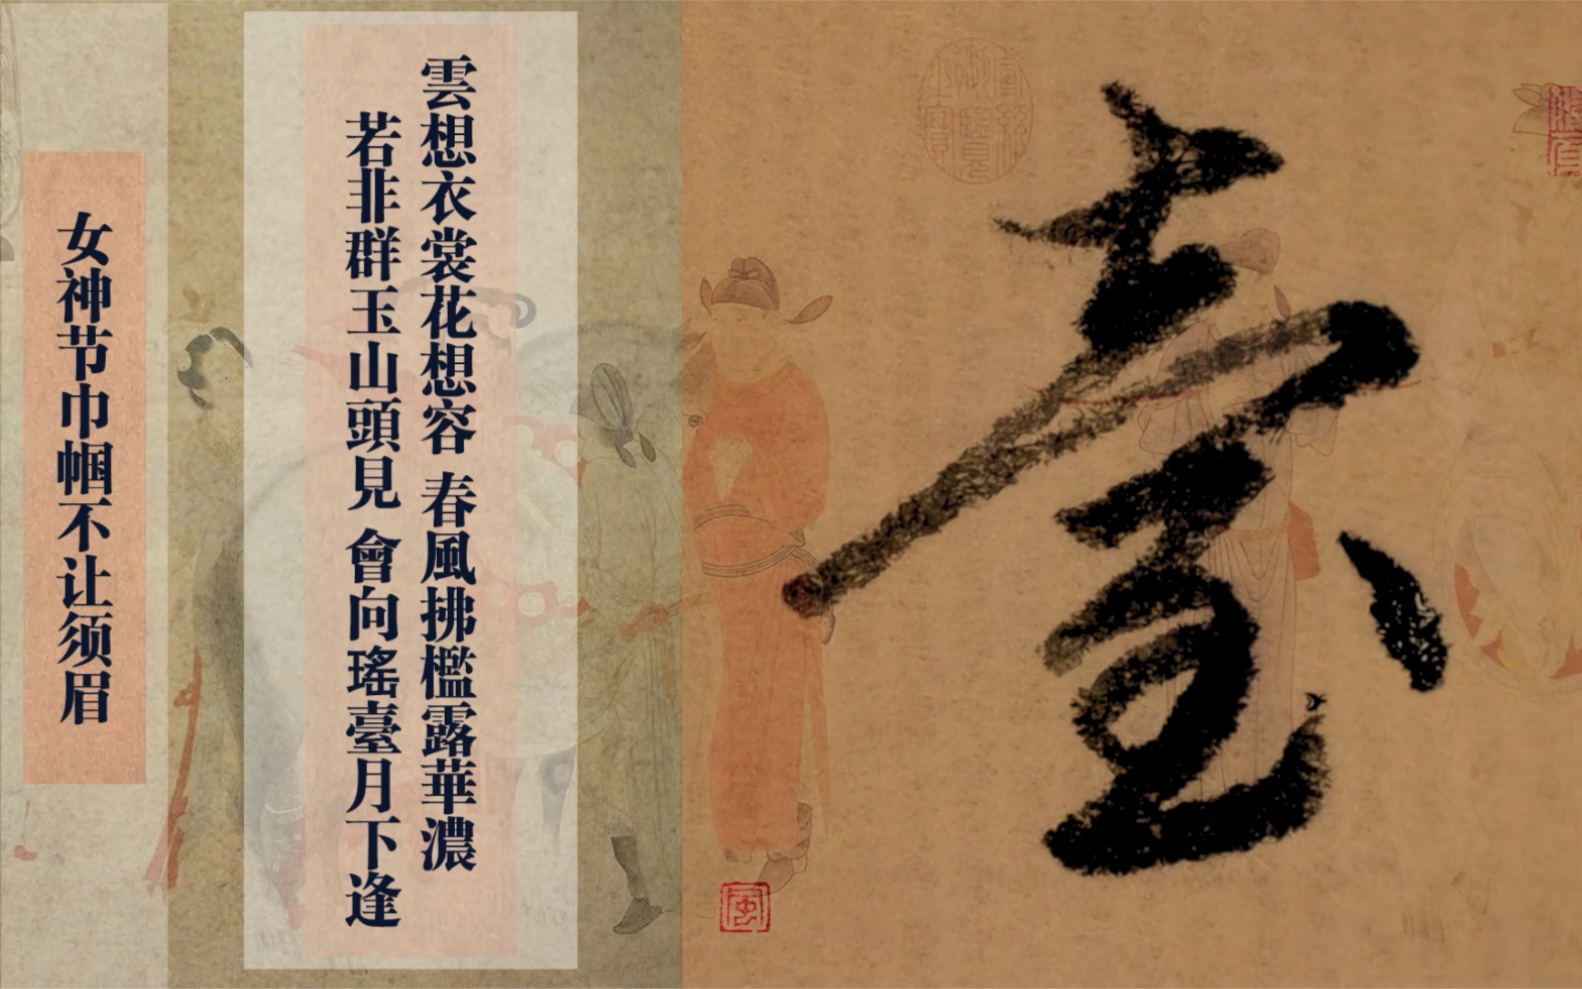 臺
雲想衣裳花想容 春風拂檻露華濃
若非群玉山頭見 會向瑤臺月下逢
女神节巾帼不让须眉